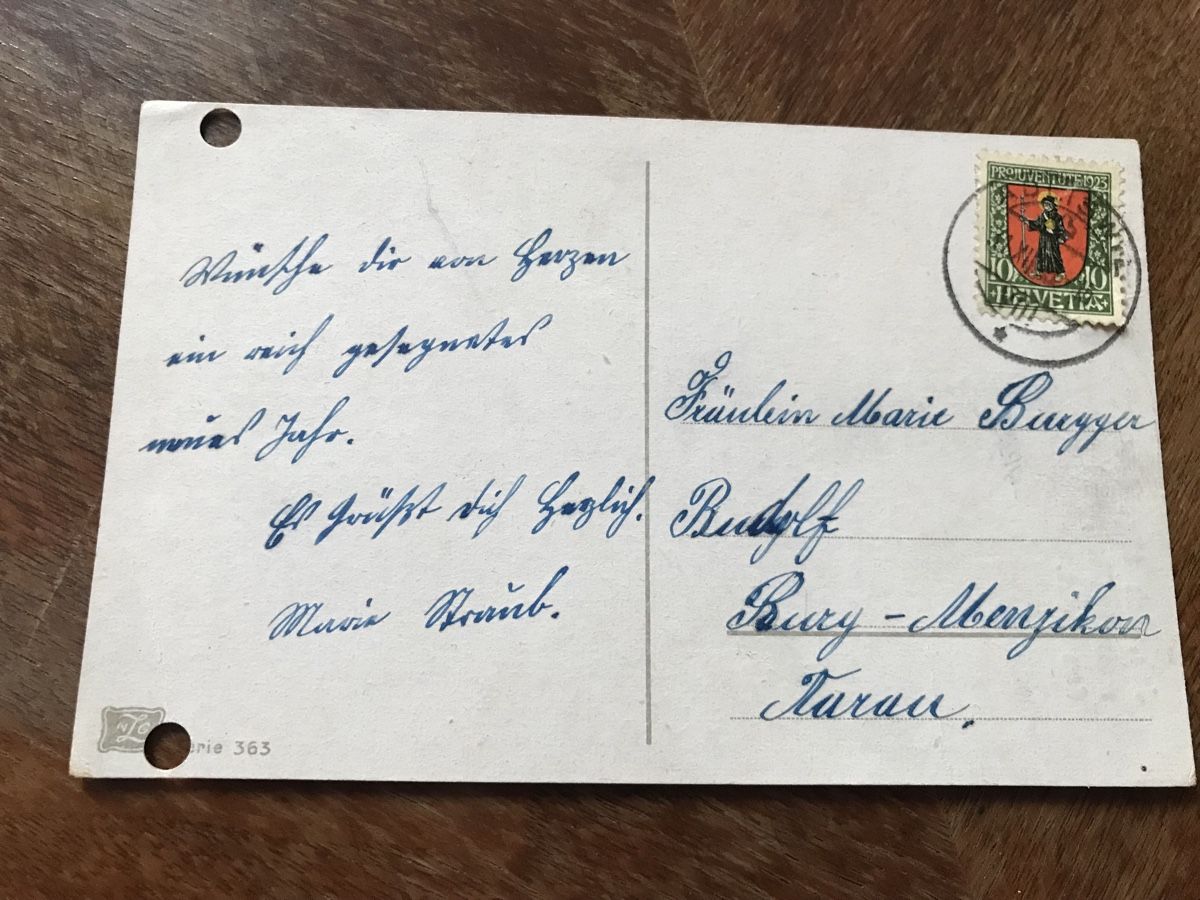 Wünsche dir von Herzen
ein reich gesegnetes
neues Jahr.
Es Grüßt dich Herzlich.
Marie Straub.
Serie 363
PRO JUVENTUTE 1923
10 10
HELVETIA
Fräulein Marie Burgger
Rudolf
Burg - Menzikon
Aarau.